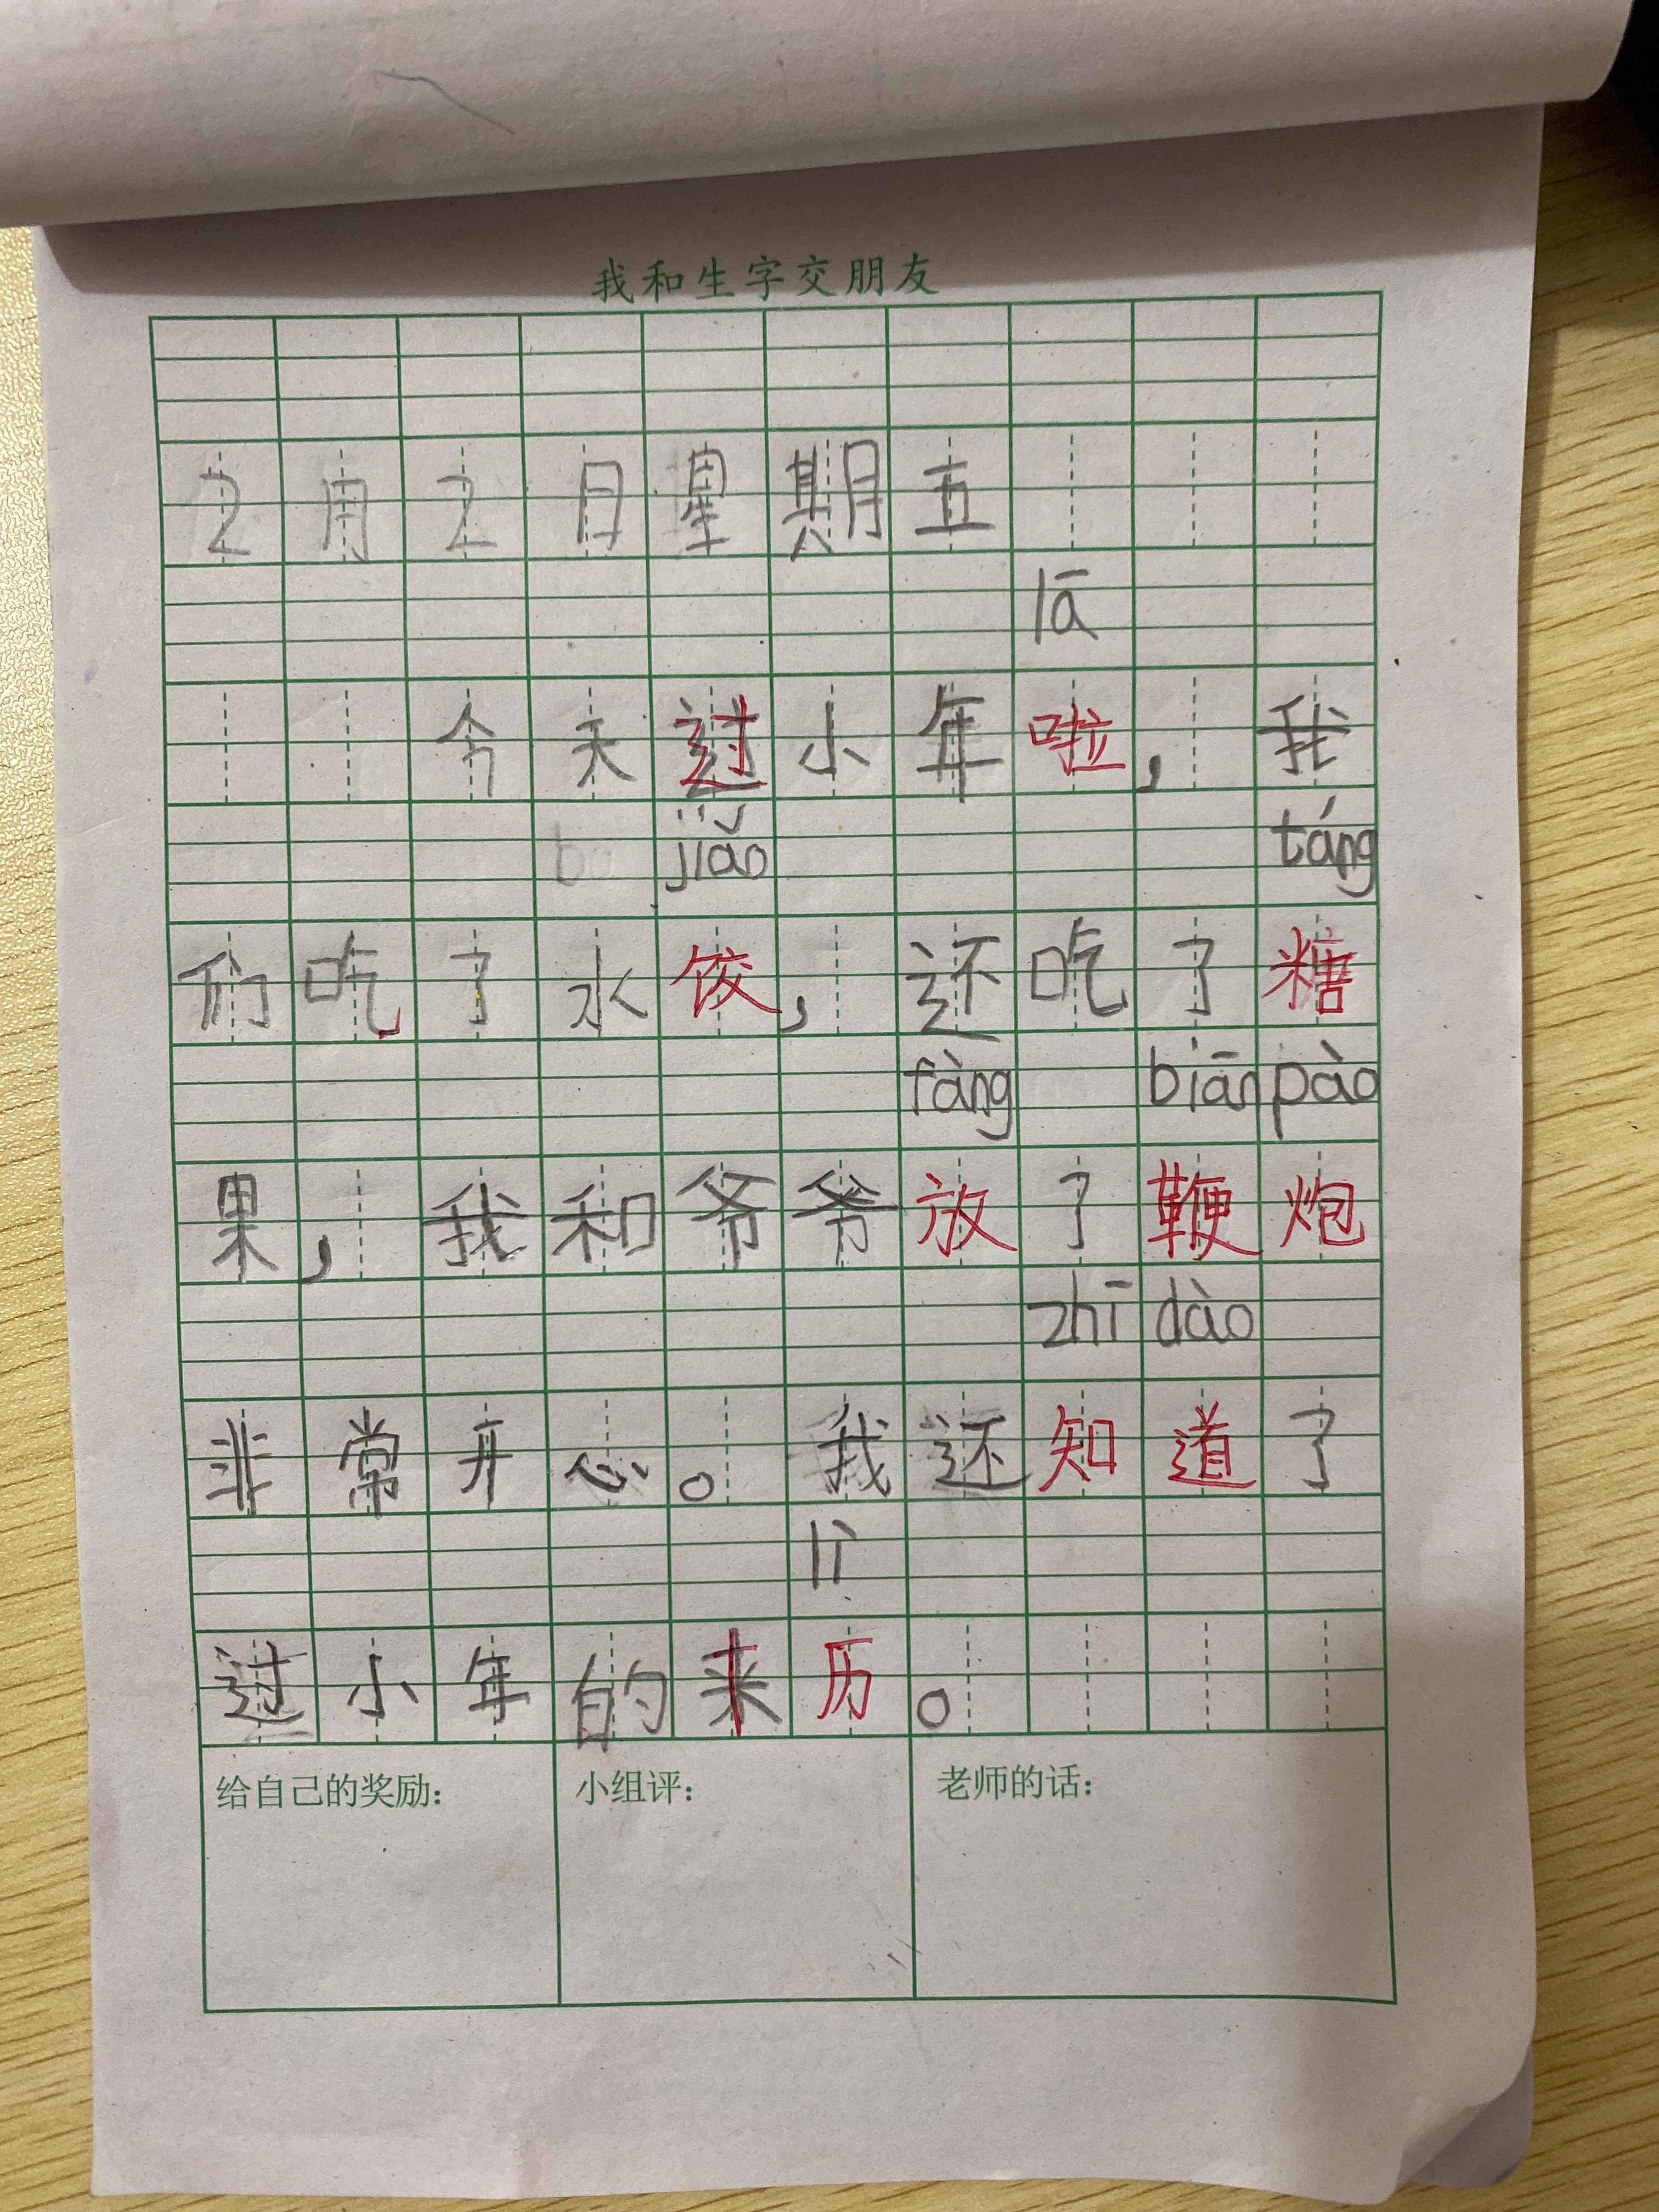 我和生字交朋友
2月2日星期五
lā
今天过小年啦，我
jiǎo táng
们吃了水饺，还吃了糖
fàng biān pào
果，我和爷爷放了鞭炮
zhī dào
非常开心。我还知道了
lì
过小年的来历。
给自己的奖励： 小组评： 老师的话：